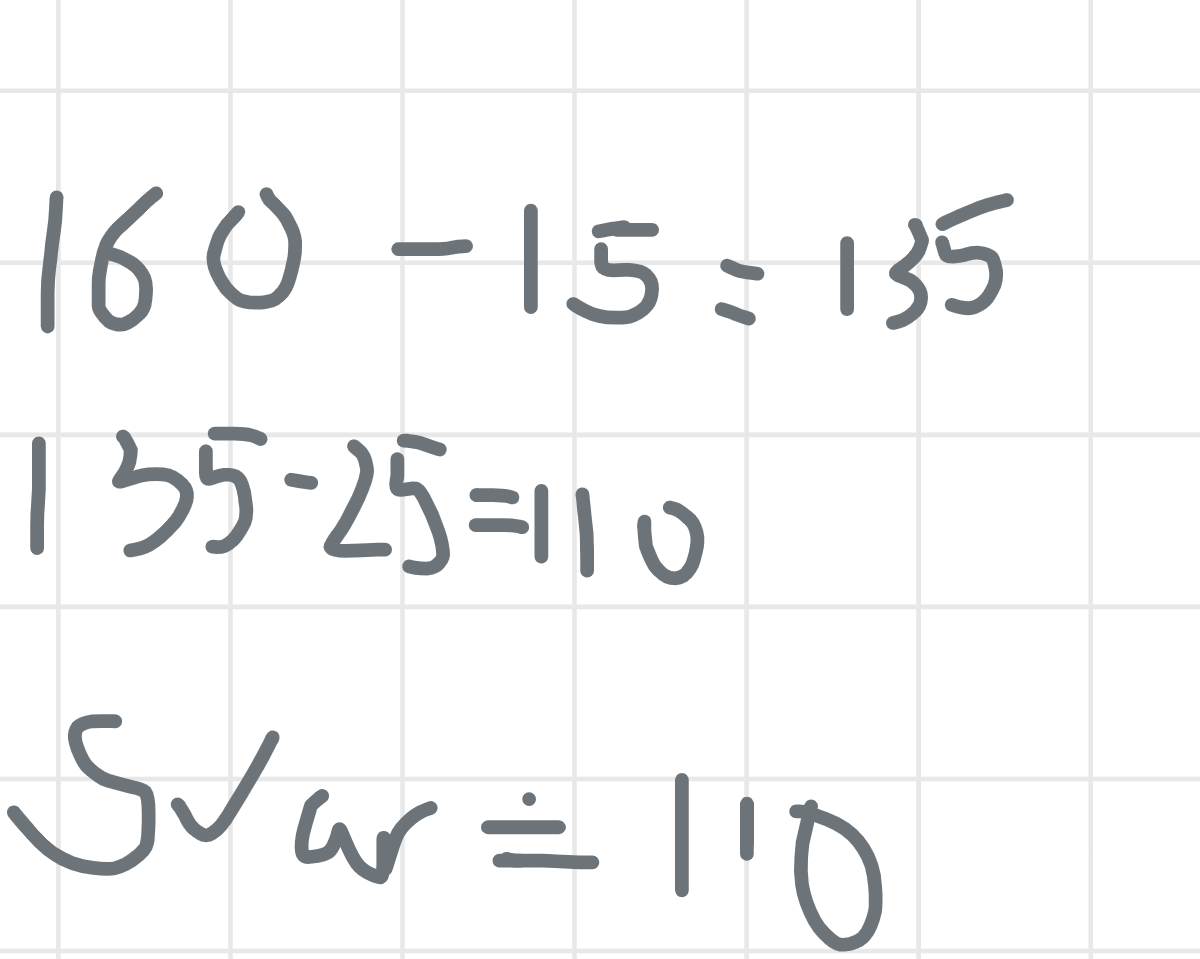 160 - 15 = 135
135-25=110
Svar = 110